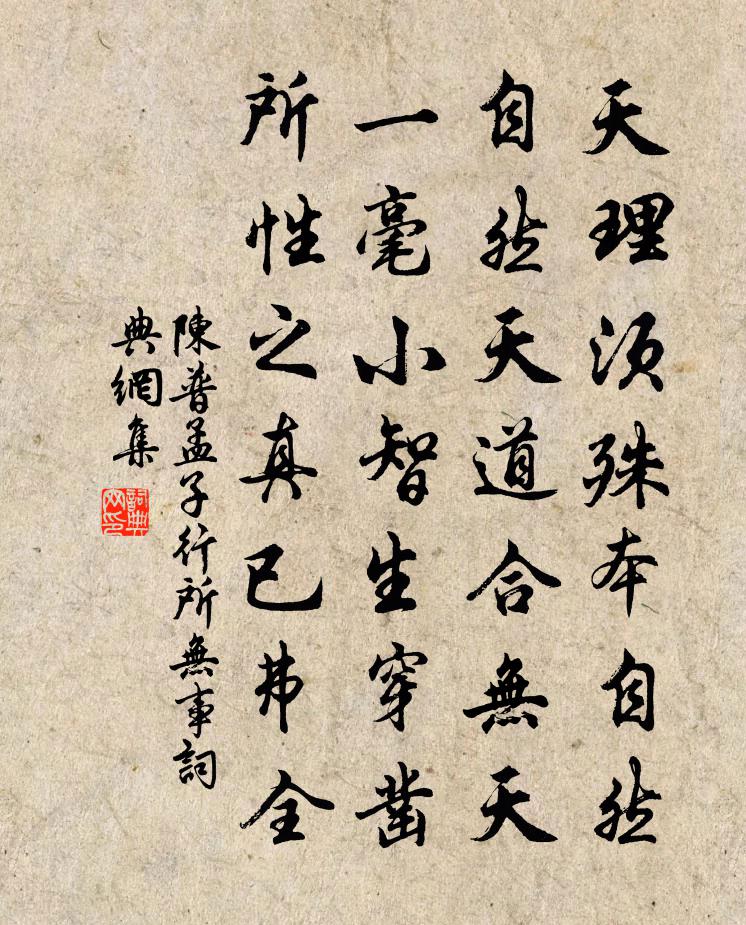 天理须殊本自然
自然天道合無天
一毫小智生穿凿
所性之真已弗全
陳普孟子行所無事詞
典網集
詞典網印